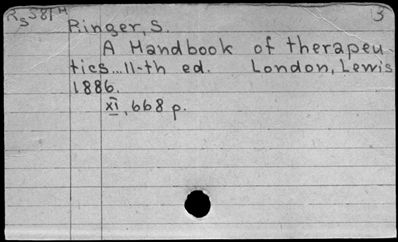 RS 581H 3
Ringer, S.
A Handbook of therapeu
tics...11-th ed. London, Lewis
1886.
XI, 668 p.